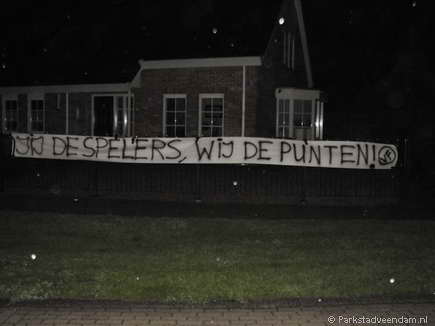 JIJ DE SPELERS, WIJ DE PUNTEN!
© Parkstadveendam.nl